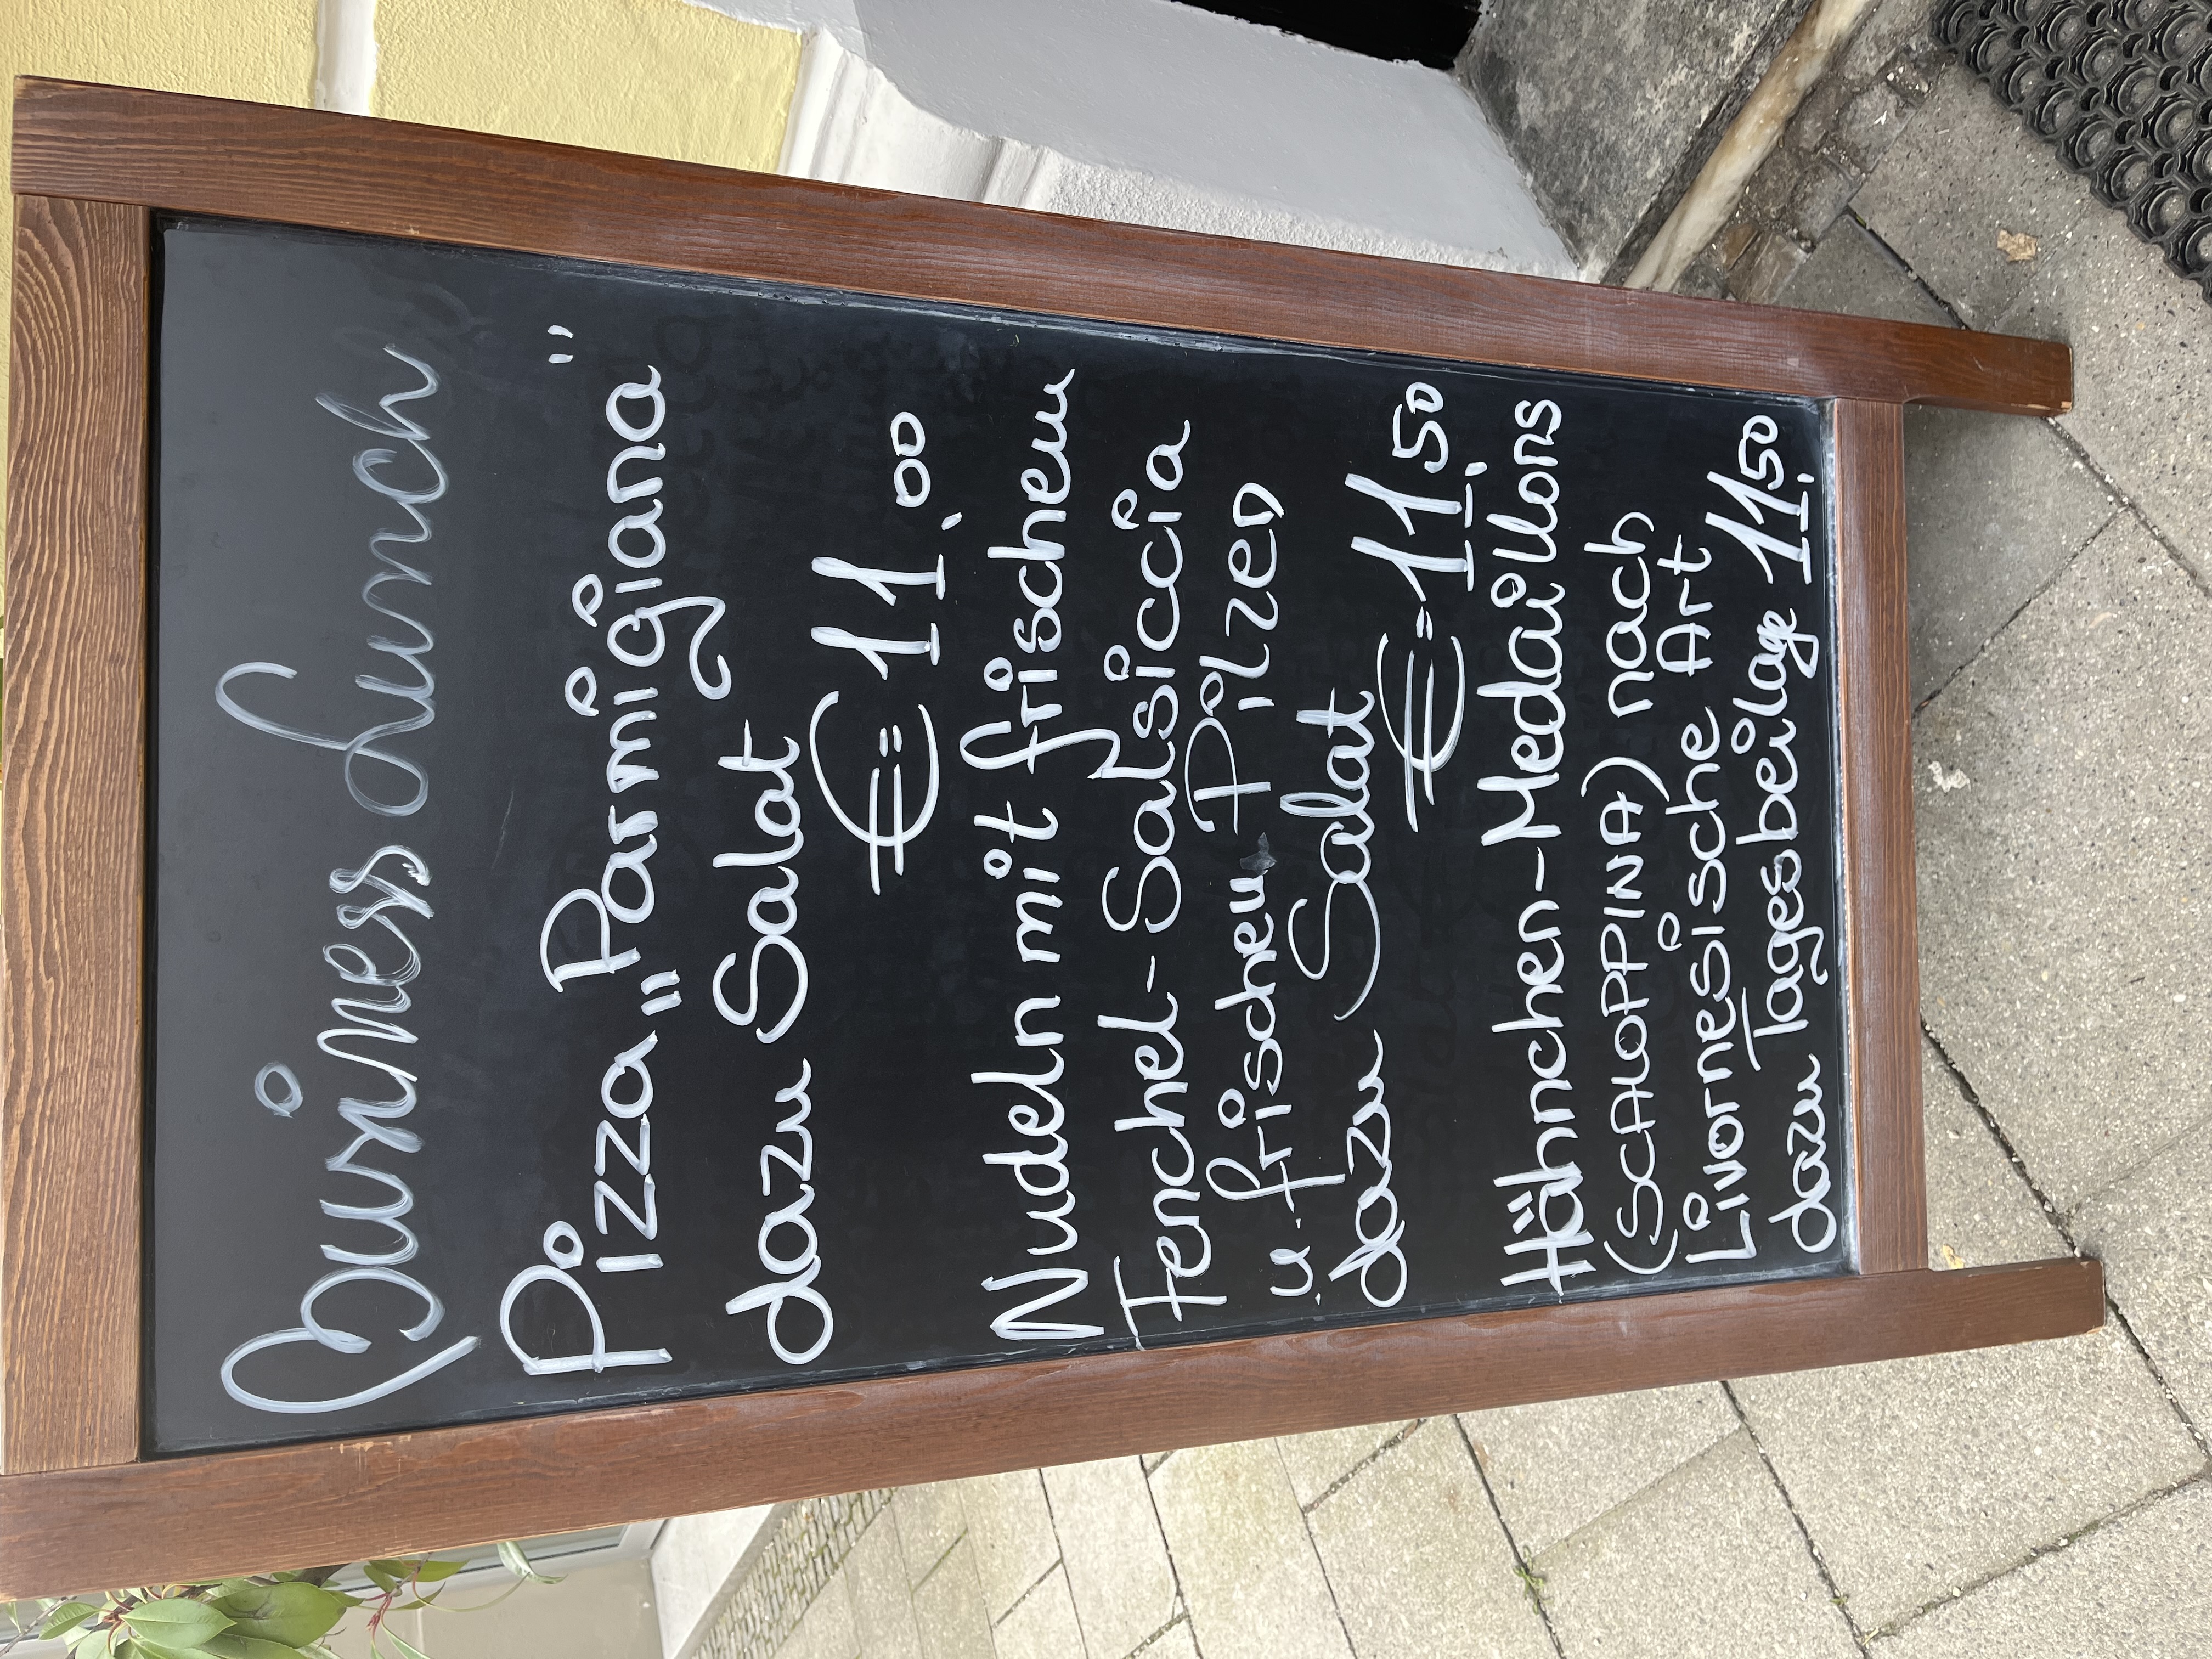 Business Lunch
Pizza „Parmigiana"
dazu Salat
€= 11,00
Nudeln mit frischem
Fenchel-Salsiccia
u. frischen Pilzen
dazu Salat
€= 11,50
Hähnchen-Medaillons
(SCALOPPINA) nach
Livornesische Art
dazu Tagesbeilage 11,50